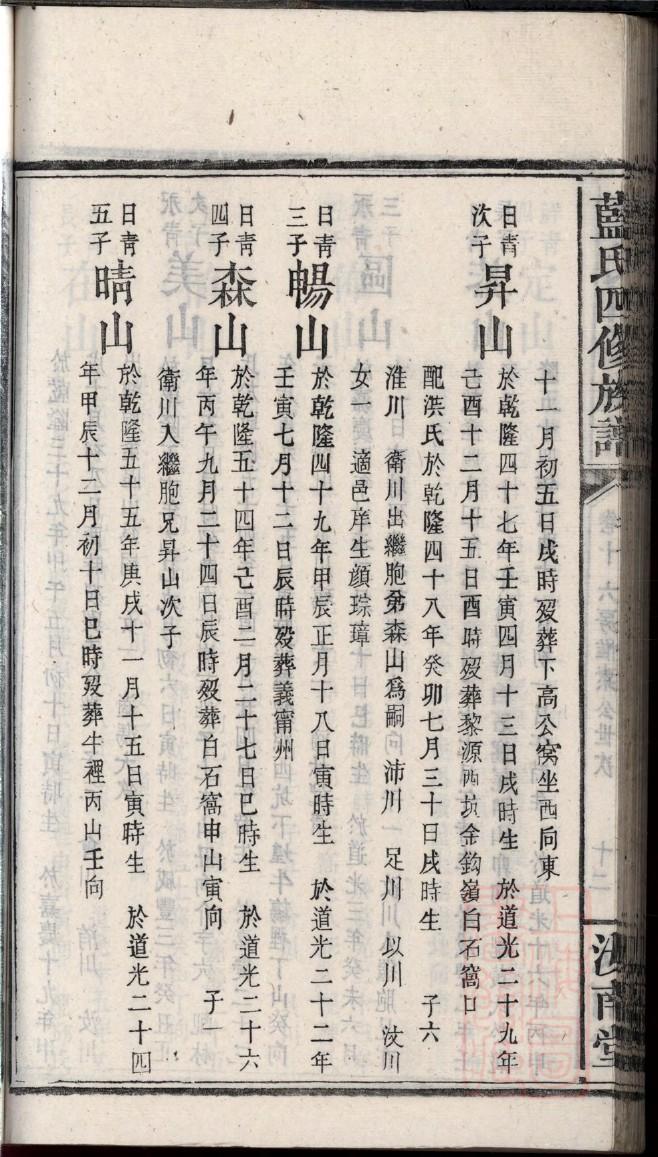 藍氏四修族譜
卷十六房惟素公世次
十二
汝南堂
十一月初五日戌時歿葬下高公窩坐西向東
日青次子
昇山
於乾隆四十七年壬寅四月十三日戌時生　於道光二十九年
己酉十二月十五日酉時歿葬黎源西坑金鈎嶺白石窩口
配洪氏於乾隆四十八年癸卯七月三十日戌時生　子六
淮川　衛川出繼胞弟森山爲嗣　沛川　足川　以川　汶川
女一　適邑庠生顔琮璋
日青三子
暢山
於乾隆四十九年甲辰正月十八日寅時生　於道光二十二年
壬寅七月十二日辰時歿葬義甯州
日青四子
森山
於乾隆五十四年己酉二月二十七日巳時生　於道光二十六
年丙午九月二十四日辰時歿葬白石窩申山寅向　子一
衛川入繼胞兄昇山次子
日青五子
晴山
於乾隆五十五年庚戌十一月十五日寅時生　於道光二十四
年甲辰十二月初十日巳時歿葬牛裡丙山壬向